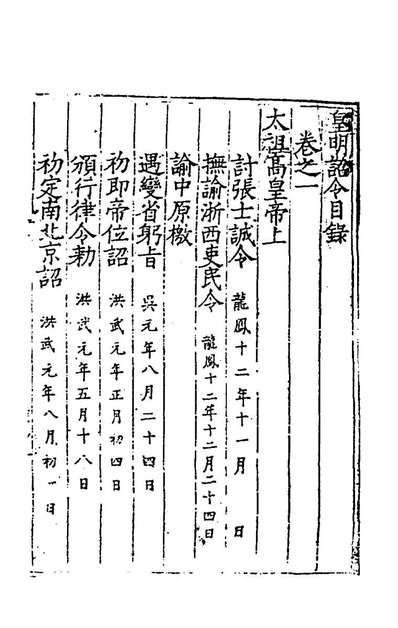 皇明詔令目錄
卷之一
太祖高皇帝上
討張士誠令 龍鳳十二年十一月 日
撫諭浙西吏民令 龍鳳十二年十二月二十四日
諭中原檄
遇變省躬旨 吳元年八月二十四日
初即帝位詔 洪武元年正月初四日
頒行律令勑 洪武元年五月十八日
初定南北京詔 洪武元年八月初一日